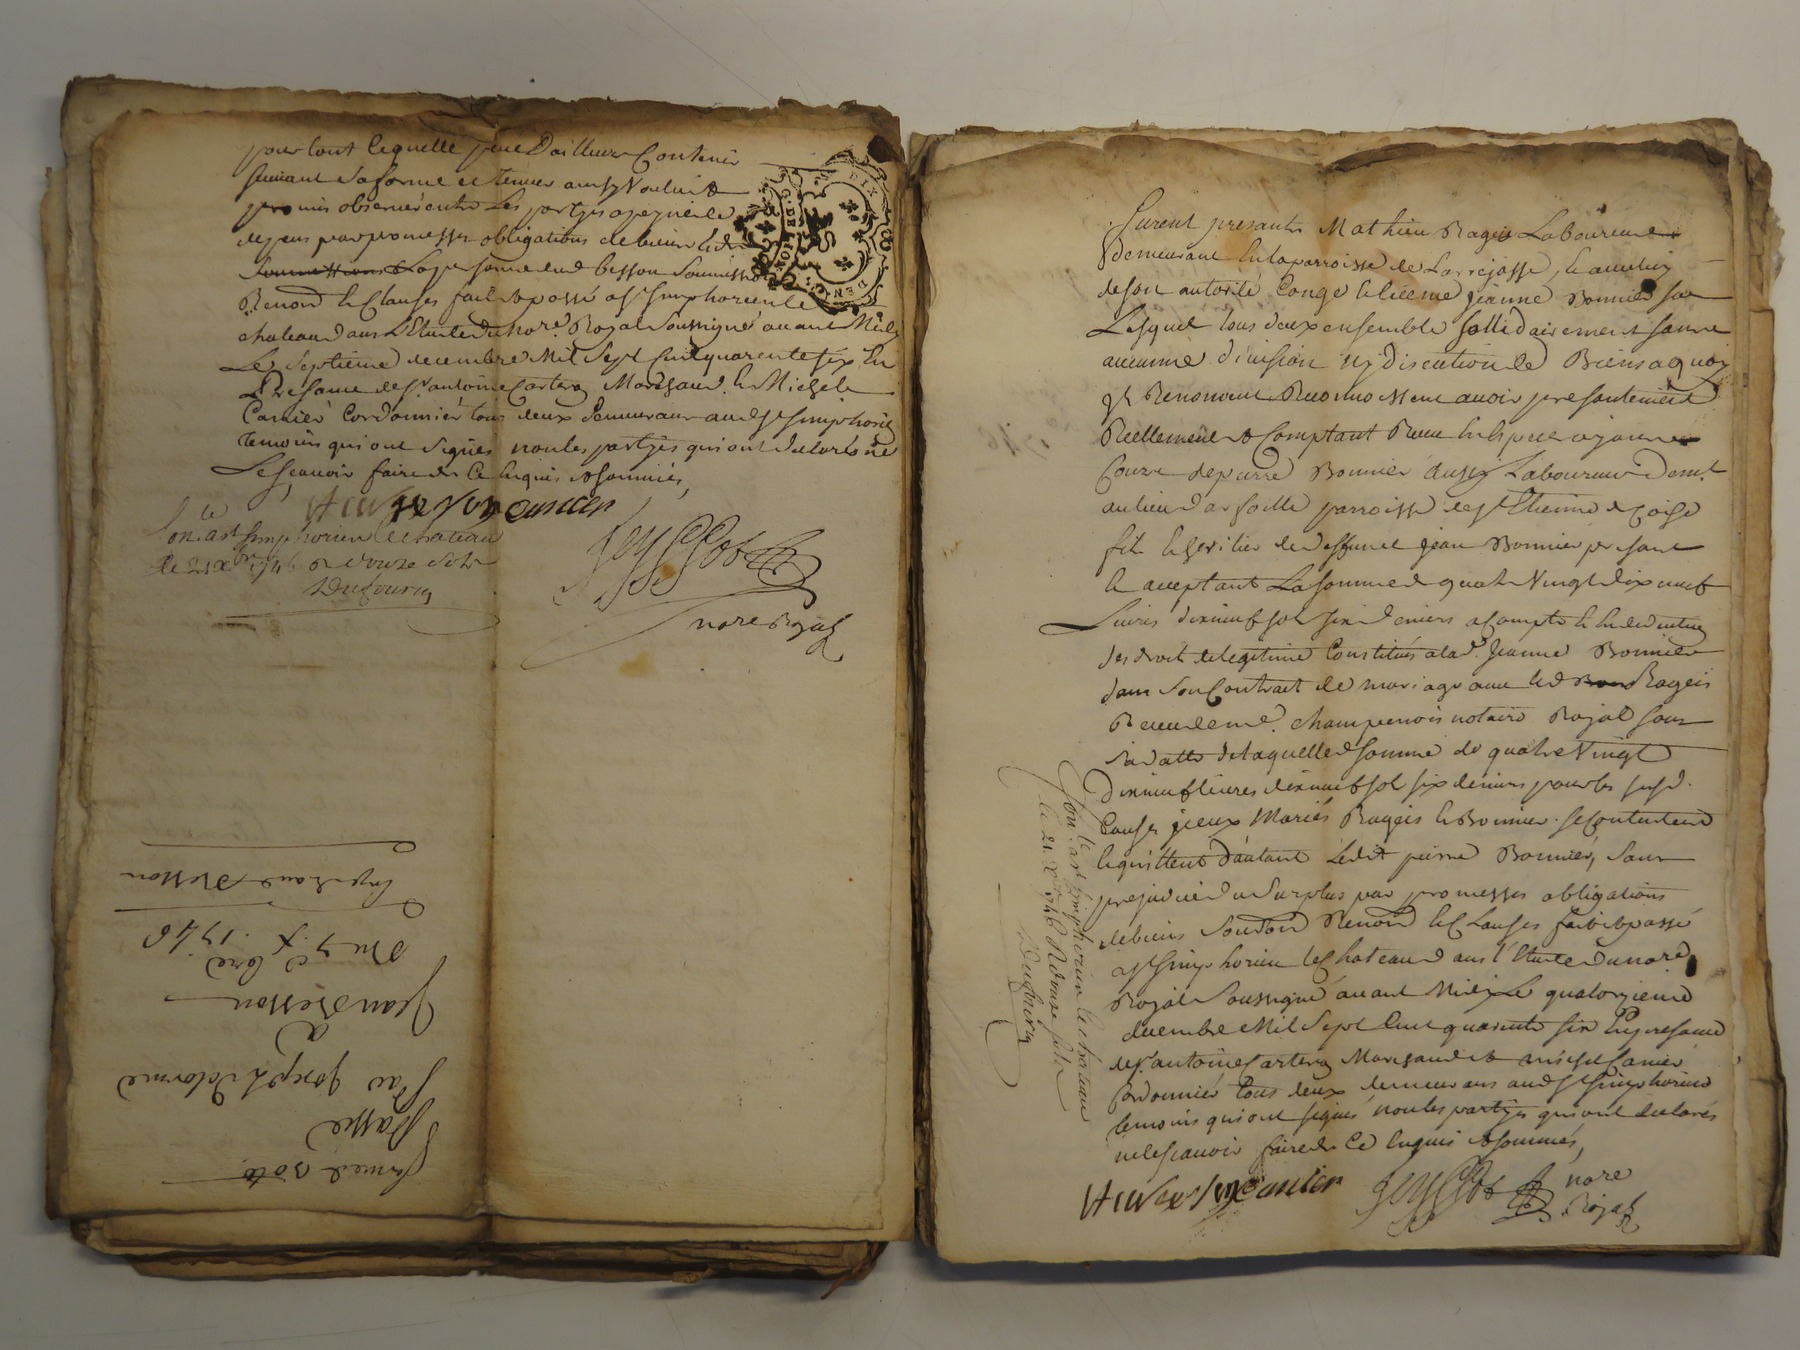 pour tout lequelle peut d'ailleurs Contenir
suivant sa forme et teneur ainsy voulu &
promis observer entre les partyes a peyne de
depens par promesses obligations de biens led.
La personne dud besson Soumission
Renond et Clauses fait & passé a St Simphorien le
chateau dans L'Etude du nore. Royal Soussigné avant Midy
Le Septieme decembre Mil Sept Cent quarente six En
Presence de Sr. antoine Carteron Marchand & Michel
Canier Cordonnier tous deux demeurant aud St Simphorien
temoins qui ont Signés non les partyes qui ont declarés ne
Le Scavoir faire de Ce Enquis & Sommés,
canier
Con. a St Simphorien le chateau
le 21 Xbre 1746 R douze sols
Dufournel
nore Royal
DIX DENIERS
G. DE LYON
Ingrand Besson
Du 7 Xbre 1746
Jean Besson
a
Par Joseph Delorme
Passé
furent presants Mathieu Rageis Laboureur
demeurant En la parroisse de Larrejasse, & authorizé
de son autorité Congé & licence Jeanne Bonnier sa
Lesquels tous deux ensemble sollidairement sans
aucunne division ny discution de Biens a quoy
ils Renoncent Reconnoissent avoir presentement
Reellement & Comptant Receu En Espece ayant
Cours de pierre Bonnier aussy Laboureur demt.
au lieu d'arfoille parroisse de St Etienne de Coise
fils & heritier de deffunct Jean Bonnier present
& acceptant La somme de quatre Vingt dix neuf
Livres dixneuf sols six deniers a Compte & En deduction
des droits de legitime Constitués a lad. Jeanne Bonnier
dans son Contrait de mariage avec led Rageis
Receu de me. champenois notaire Royal sous
sa datte de laquelle somme de quatre Vingt
dixneuf livres dixneuf sols six deniers pour les susd.
Causes yceux Mariés Rageis & Bonnier se Contentent
& quittent d'autant Ledit pierre Bonnier, sans
prejudice du Surplus par promesses obligations
de biens Soumon Renond et Clauses fait & passé
a St Simphorien le Chateau dans l'Etude du nore
Royal Soussigné avant Midy Le quatorzieme
decembre Mil Sept Cent quarente six En presence
de Sr antoine Carteron Marchand & michel Canier
Cordonnier tous deux demeurans aud St Simphorien
temoins qui ont signés non les partyes qui ont declarés
ne le scavoir faire de Ce Enquis & Sommés,
canier
nore
Royal
Con. a St Simphorien le chateau
le 21 Xbre 1746 R douze sols
Dufournel